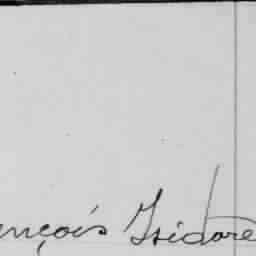 ençois Isidore